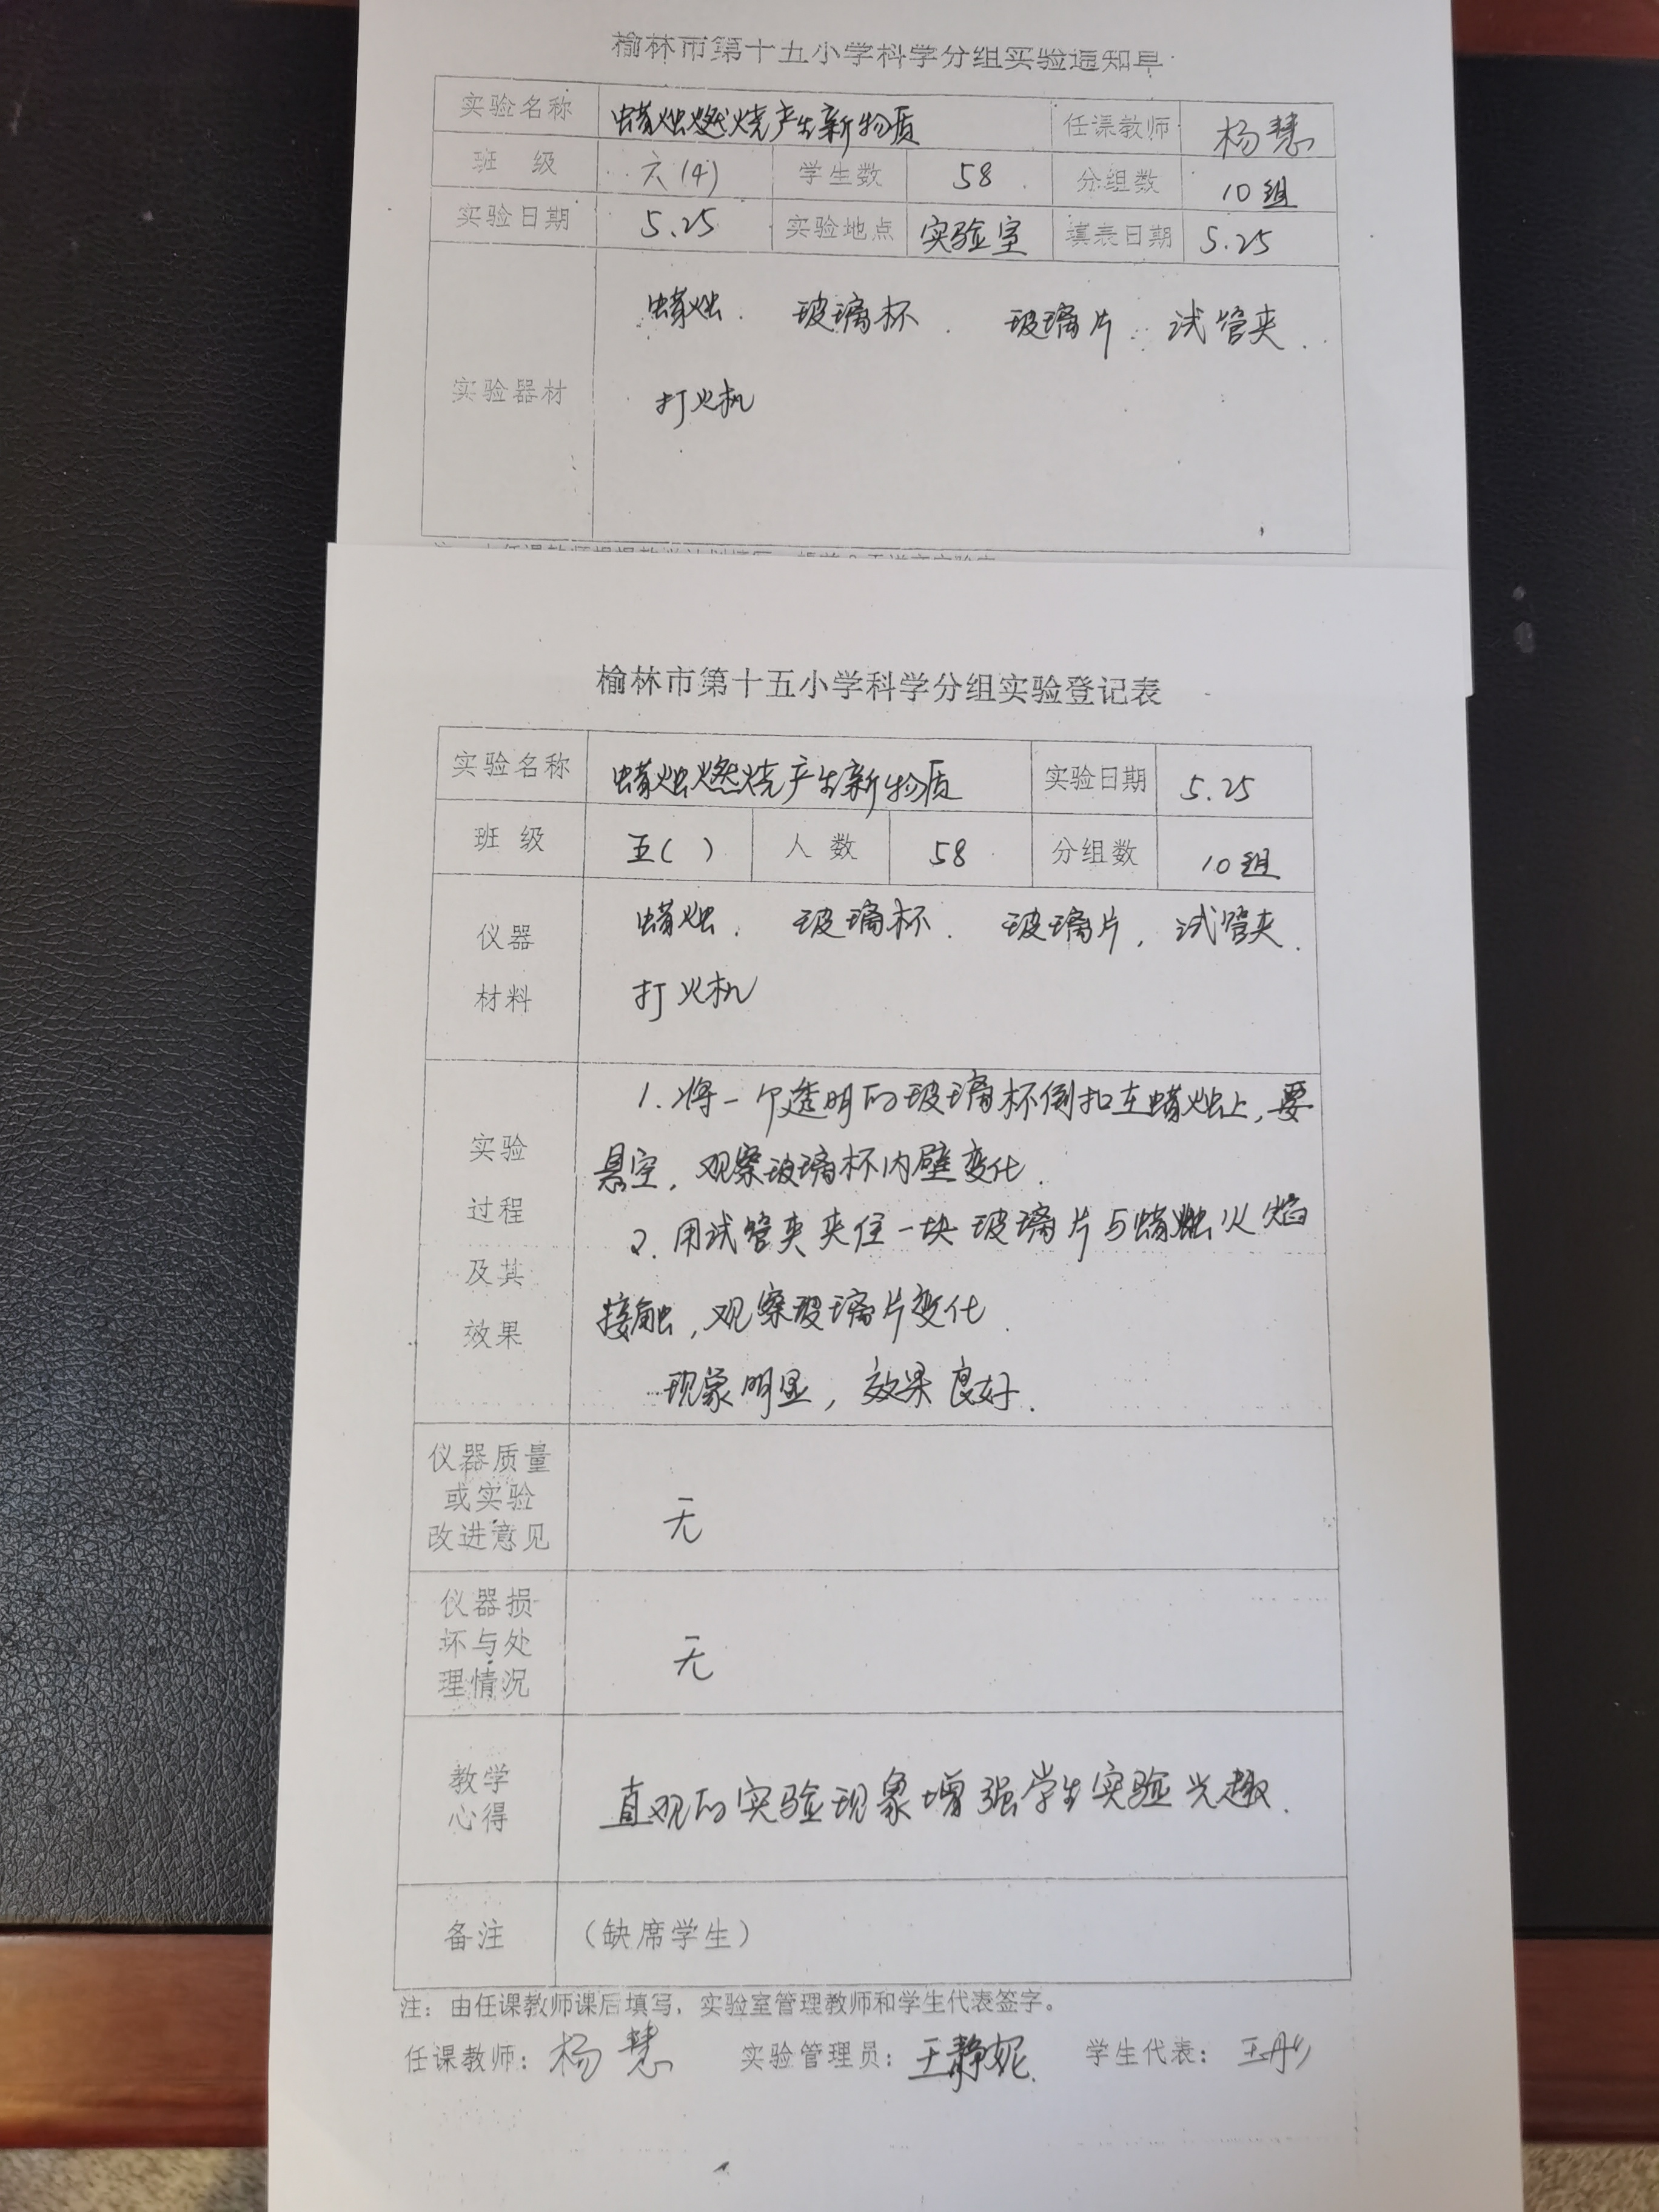 榆林市第十五小学科学分组实验通知单
实验名称 蜡烛燃烧产生新物质 任课教师 杨慧
班 级 六(4) 学生数 58 分组数 10组
实验日期 5.25 实验地点 实验室 填表日期 5.25
蜡烛. 玻璃杯. 玻璃片. 试管夹.
实验器材 打火机
榆林市第十五小学科学分组实验登记表
实验名称 蜡烛燃烧产生新物质 实验日期 5.25
班 级 五( ) 人 数 58 分组数 10组
仪器 蜡烛. 玻璃杯. 玻璃片, 试管夹.
材料 打火机
1. 将一个透明的玻璃杯倒扣在蜡烛上, 要
实验 悬空, 观察玻璃杯内壁变化.
过程 2. 用试管夹夹住一块玻璃片与蜡烛火焰
及其
效果 接触, 观察玻璃片变化.
现象明显, 效果良好.
仪器质量
或实验 无
改进意见
仪器损
坏与处 无
理情况
教学 直观的实验现象增强学生实验兴趣.
心得
备注 (缺席学生)
注: 由任课教师课后填写, 实验室管理教师和学生代表签字。
任课教师: 杨慧 实验管理员: 王静妮. 学生代表: